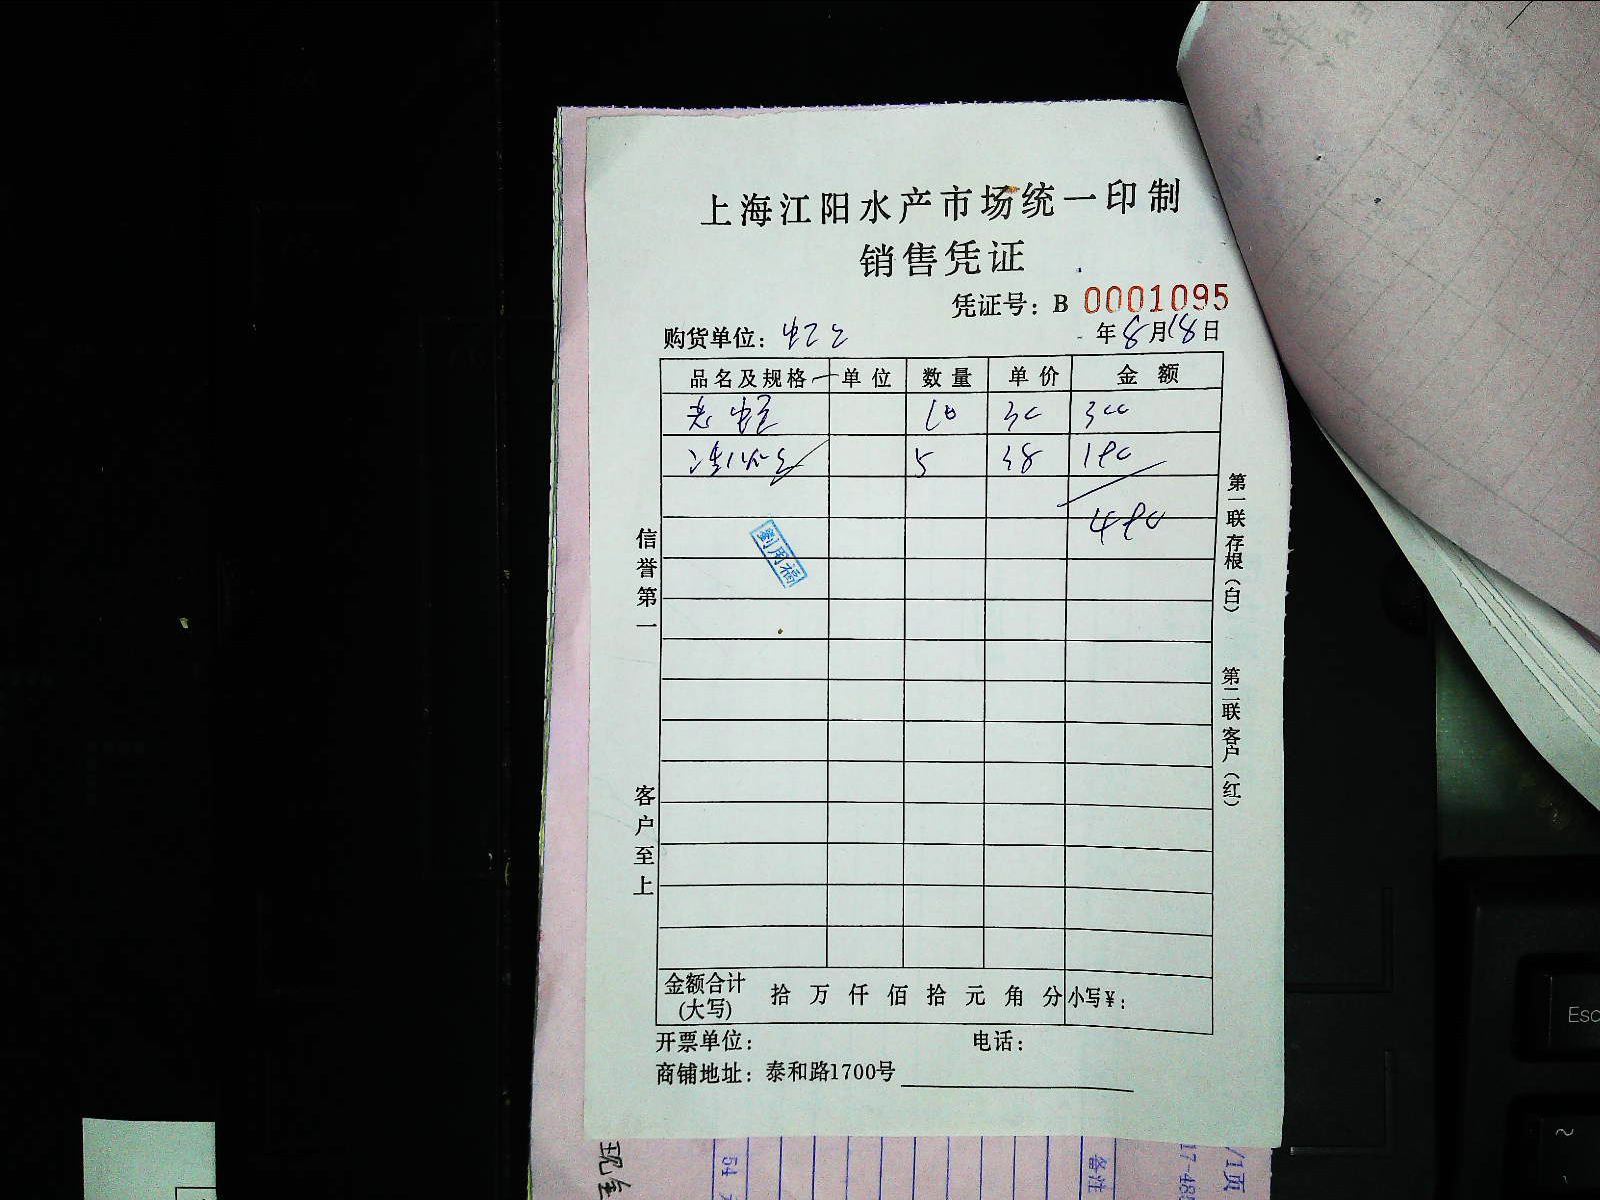 上海江阳水产市场统一印制
销售凭证
凭证号：B 0001095
购货单位：
年8月18日
品名及规格 单位 数量 单价 金额
10 30 300
5 38 190
490
劉用福
信誉第一
客户至上
第一联存根（白）
第二联客户（红）
金额合计(大写) 拾 万 仟 佰 拾 元 角 分 小写¥：
开票单位： 电话：
商铺地址：泰和路1700号
现金
54
备注
17-48
/1页
Esc
~